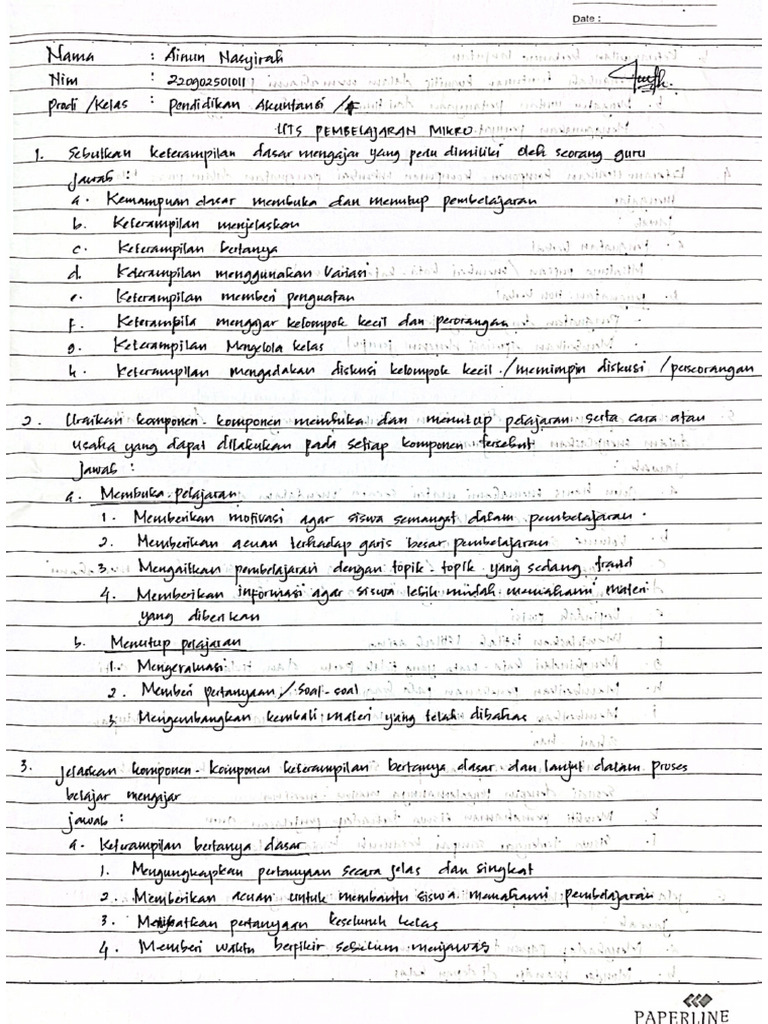 Date :
Nama : Ainun Nasyirah
Nim : 220902501011
Prodi / Kelas : Pendidikan Akuntansi / F
UTS PEMBELAJARAN MIKRO
1. Sebutkan keterampilan dasar mengajar yang perlu dimiliki oleh seorang guru
Jawab :
a. Kemampuan dasar membuka dan menutup pembelajaran
b. Keterampilan menjelaskan
c. Keterampilan bertanya
d. Keterampilan menggunakan Variasi
e. Keterampilan memberi penguatan
f. Keterampila mengajar kelompok kecil dan perorangan
g. Keterampilan Mengelola kelas
h. Keterampilan mengadakan diskusi kelompok kecil / memimpin diskusi / perseorangan
2. Uraikan komponen-komponen membuka dan menutup pelajaran serta cara atau
usaha yang dapat dilakukan pada setiap komponen tersebut
Jawab :
a. Membuka pelajaran
1. Memberikan motivasi agar siswa semangat dalam pembelajaran.
2. Memberikan acuan terhadap garis besar pembelajaran
3. Mengaitkan pembelajaran dengan topik-topik yang sedang trand
4. Memberikan informasi agar siswa lebih mudah memahami materi
yang diberikan
b. Menutup pelajaran
1. Mengevaluasi
2. Memberi pertanyaan / Soal-soal
3. Mengembangkan kembali materi yang telah dibahas
3. Jelaskan komponen-komponen keterampilan bertanya dasar dan lanjut dalam proses
belajar mengajar
Jawab :
a. Keterampilan bertanya dasar
1. Mengungkapkan pertanyaan secara jelas dan singkat
2. Memberikan acuan untuk membantu siswa memahami pembelajaran
3. pertanyaan keseluruh kelas
4. Memberi waktu berpikir sebelum menjawab
PAPERLINE